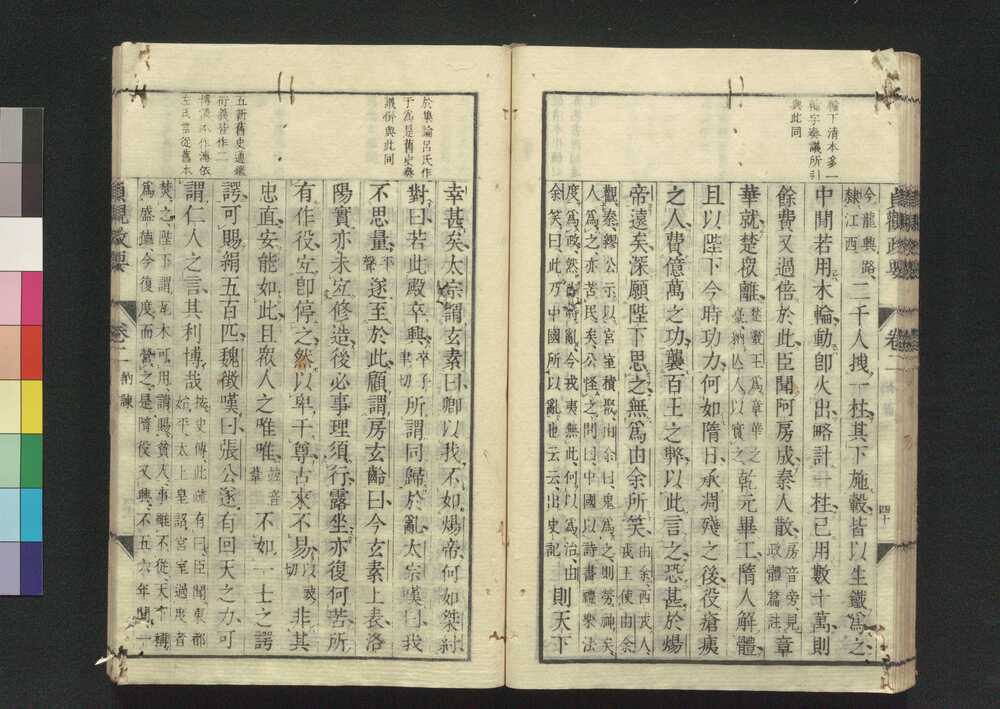 輪下清本多一
輪字奏議所引
與此同
貞觀政要
卷二
四十
今龍興路隸江西二千人拽一柱其下施轂皆以生鐵爲之
中閒若用木輪動卽火出略計一柱已用數十萬則
餘費又過倍於此臣聞阿房成秦人散房音旁見政體篇註章
華就楚衆離楚靈王爲章華之臺納亡人以實之乾元畢工隋人解體
且以陛下今時功力何如隋日承凋殘之後役瘡痍
之人費億萬之功襲百王之弊以此言之恐甚於煬
帝遠矣深願陛下思之無爲由余所笑由余西戎人戎王使由余
觀秦繆公示以宮室積聚由余曰鬼爲之則勞神矣
人爲之亦苦民矣公怪之問曰中國以詩書禮樂法
度爲政然尚時亂今戎夷無此何以爲治由
余笑曰此乃中國所以亂也云云出史記則天下
於集論呂氏作
于爲是舊史奏
議併與此同
五新舊史通鑑
衍義皆作二
左氏當從舊本
幸甚矣太宗謂玄素曰卿以我不如煬帝何如桀紂
對曰若此殿卒興卒子聿切所謂同歸於亂太宗嘆曰我
不思量平聲遂至於此顧謂房玄齡曰今玄素上表洛
陽實亦未宜修造後必事理須行露坐亦復何苦所
有作役宜卽停之然以卑干尊古來不易以豉切非其
忠直安能如此且衆人之唯唯不如一士之諤
諤可賜絹五百匹魏徵嘆曰張公遂有回天之力可
謂仁人之言其利博哉按史傳此疏有曰臣聞東都始平太上皇詔宮室過度者
焚之陛下謂瓦木可用請賜貧人事雖不從天下稱
爲盛德今復度而營之是隋役又興不五六年閒一
貞觀政要
卷二
納諫